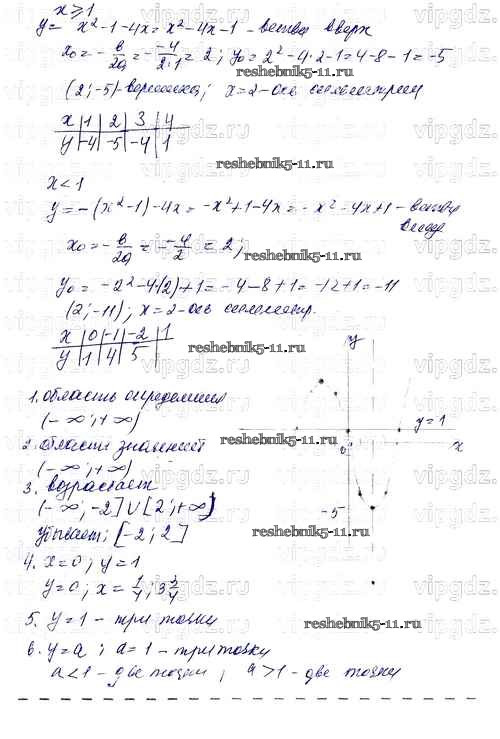 x ≥ 1
y = x² - 1 - 4x = x² - 4x - 1 - ветви вверх
x₀ = - в/2a = - -4/2·1 = 2; y₀ = 2² - 4·2 - 1 = 4 - 8 - 1 = -5
(2; -5) - вершина; x = 2 - ось симметрии
reshebnik5-11.ru
x | 1 | 2 | 3 | 4
y | -4 | -5 | -4 | 1
reshebnik5-11.ru
x < 1
y = -(x² - 1) - 4x = -x² + 1 - 4x = -x² - 4x + 1 - ветви
вниз
x₀ = - в/2a = - -4/2 = 2;
reshebnik5-11.ru
y₀ = -2² - 4(2) + 1 = -4 - 8 + 1 = -12 + 1 = -11
(2; -11); x = 2 - ось симметр.
x | 0 | -1 | -2 | 1
y | 1 | 4 | 5
reshebnik5-11.ru
y
1. область определения
(-∞; +∞)
y = 1
x
0
2. области значений
reshebnik5-11.ru
(-∞; +∞)
3. возрастает
(-∞; -2] ∪ [2; +∞)
-5
убывает; [-2; 2]
reshebnik5-11.ru
4. x = 0; y = 1
y = 0; x = 1/4; 3 3/4
5. y = 1 - три точки
reshebnik5-11.ru
6. y = a; a = 1 - три точки
a < 1 - две точки; a > 1 - две точки
vipgdz.ru